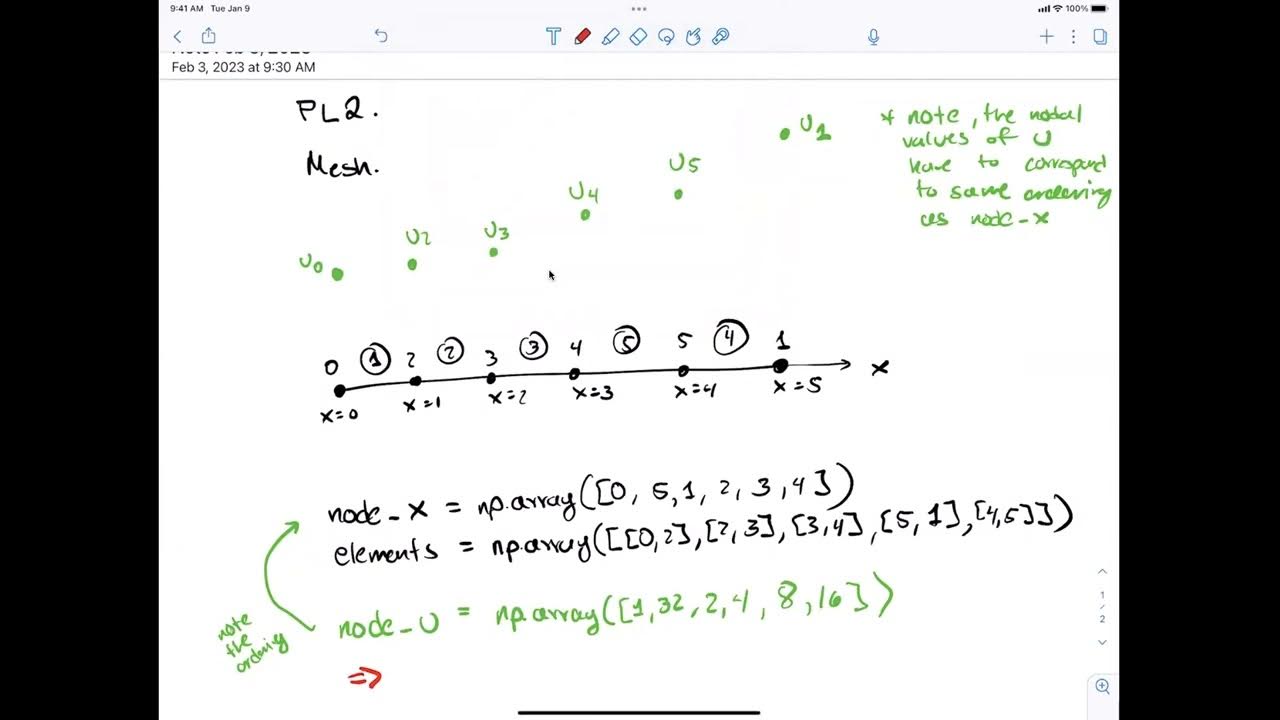 9:41 AM Tue Jan 9
100%
Feb 3, 2023 at 9:30 AM
PL2.
Mesh.
U0 U2 U3 U4 U5 U1
* note, the nodal
values of U
have to correspond
to same ordering
as node-x
0 ① 2 ② 3 ③ 4 ⑤ 5 ④ 1
x
x=0 x=1 x=2 x=3 x=4 x=5
node_x = np.array([0, 5, 1, 2, 3, 4])
elements = np.array([[0,2],[2,3],[3,4],[5,1],[4,5]])
node_U = np.array([1,32,2,4,8,16])
note
the
ordering
⇒
1
/
2